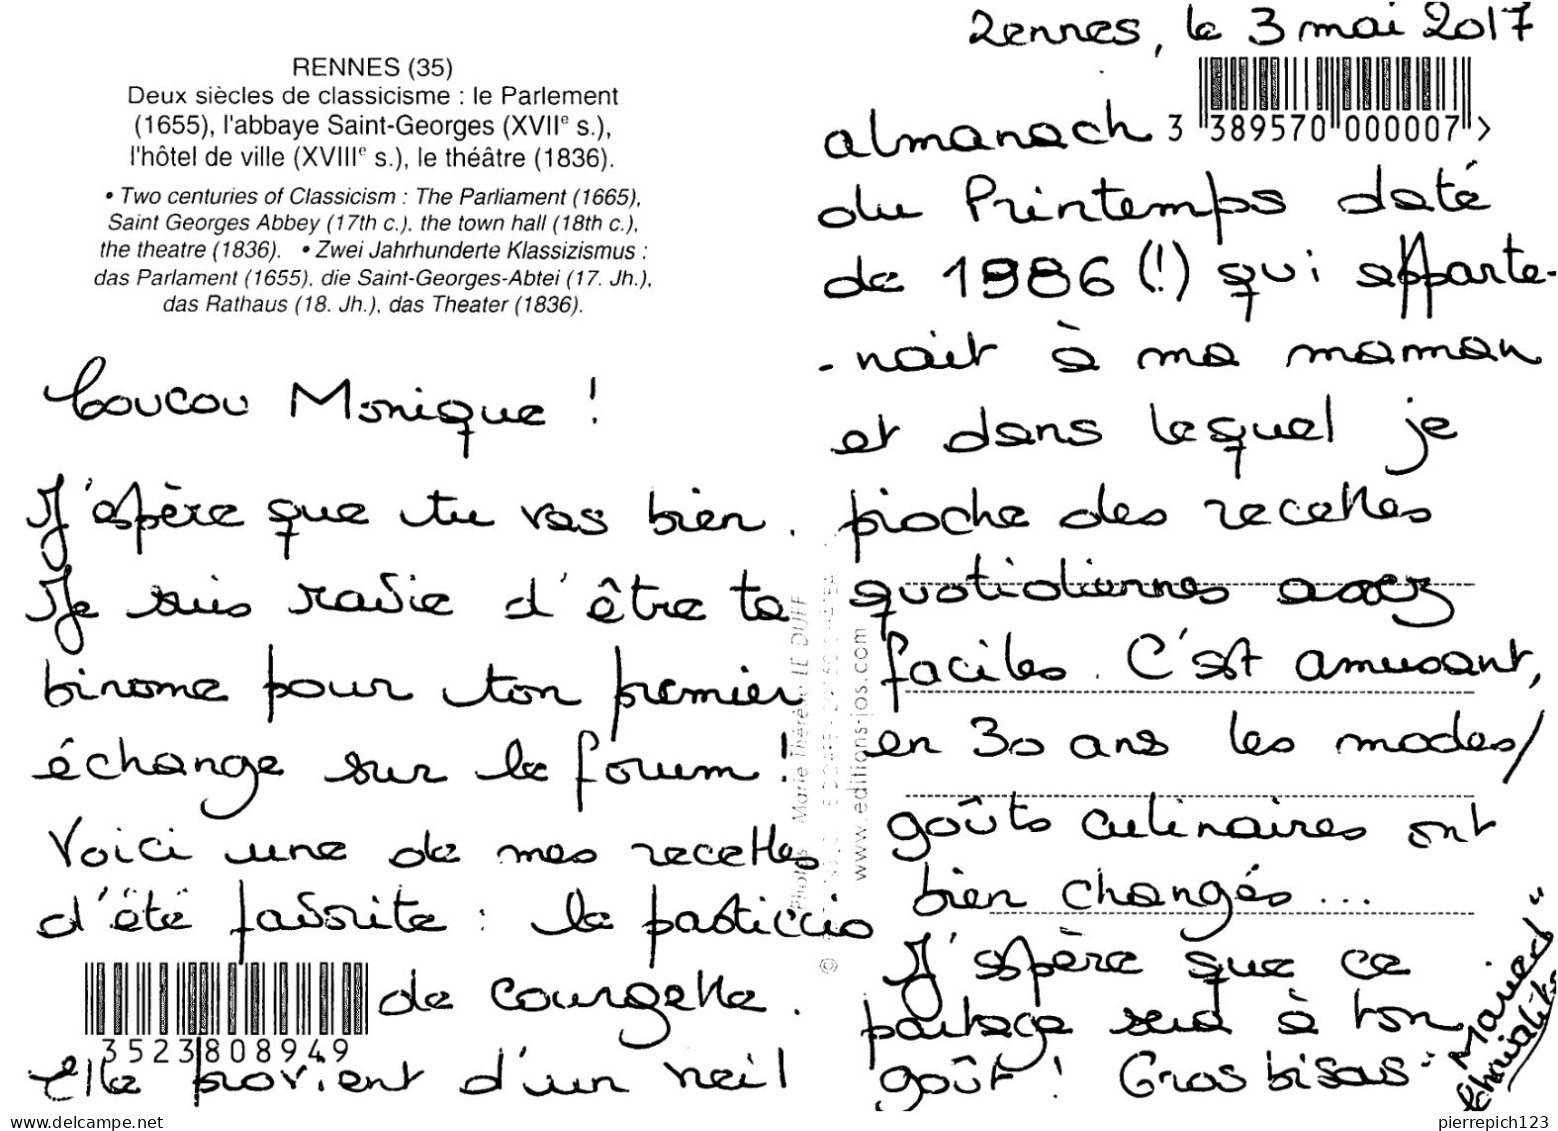 RENNES (35)
Deux siècles de classicisme : le Parlement
(1655), l'abbaye Saint-Georges (XVIIe s.),
l'hôtel de ville (XVIIIe s.), le théâtre (1836).
• Two centuries of Classicism : The Parliament (1665),
Saint Georges Abbey (17th c.), the town hall (18th c.),
the theatre (1836). • Zwei Jahrhunderte Klassizismus :
das Parlament (1655), die Saint-Georges-Abtei (17. Jh.),
das Rathaus (18. Jh.), das Theater (1836).
Coucou Monique !
J'espère que tu vas bien.
Je suis ravie d'être ta
binome pour ton premier
échange sur le forum !
Voici une de mes recettes
d'été favorite : le pasticcio
de courgette.
3523808949
Elle provient d'un vieil
Photos Marie Thérèse LE DUFF
www.editions-jos.com
Rennes, le 3 mai 2017
3 389570 000007 >
almanach
du Printemps daté
de 1986 (!) qui apparte-
-nait à ma maman
et dans lequel je
pioche des recettes
quotidiennes assez
faciles. C'est amusant,
en 30 ans les modes/
goûts culinaires ont
bien changés...
J'espère que ce
partage sera à ton
goût ! Gros bisous
delcampe.net
pierrepich123